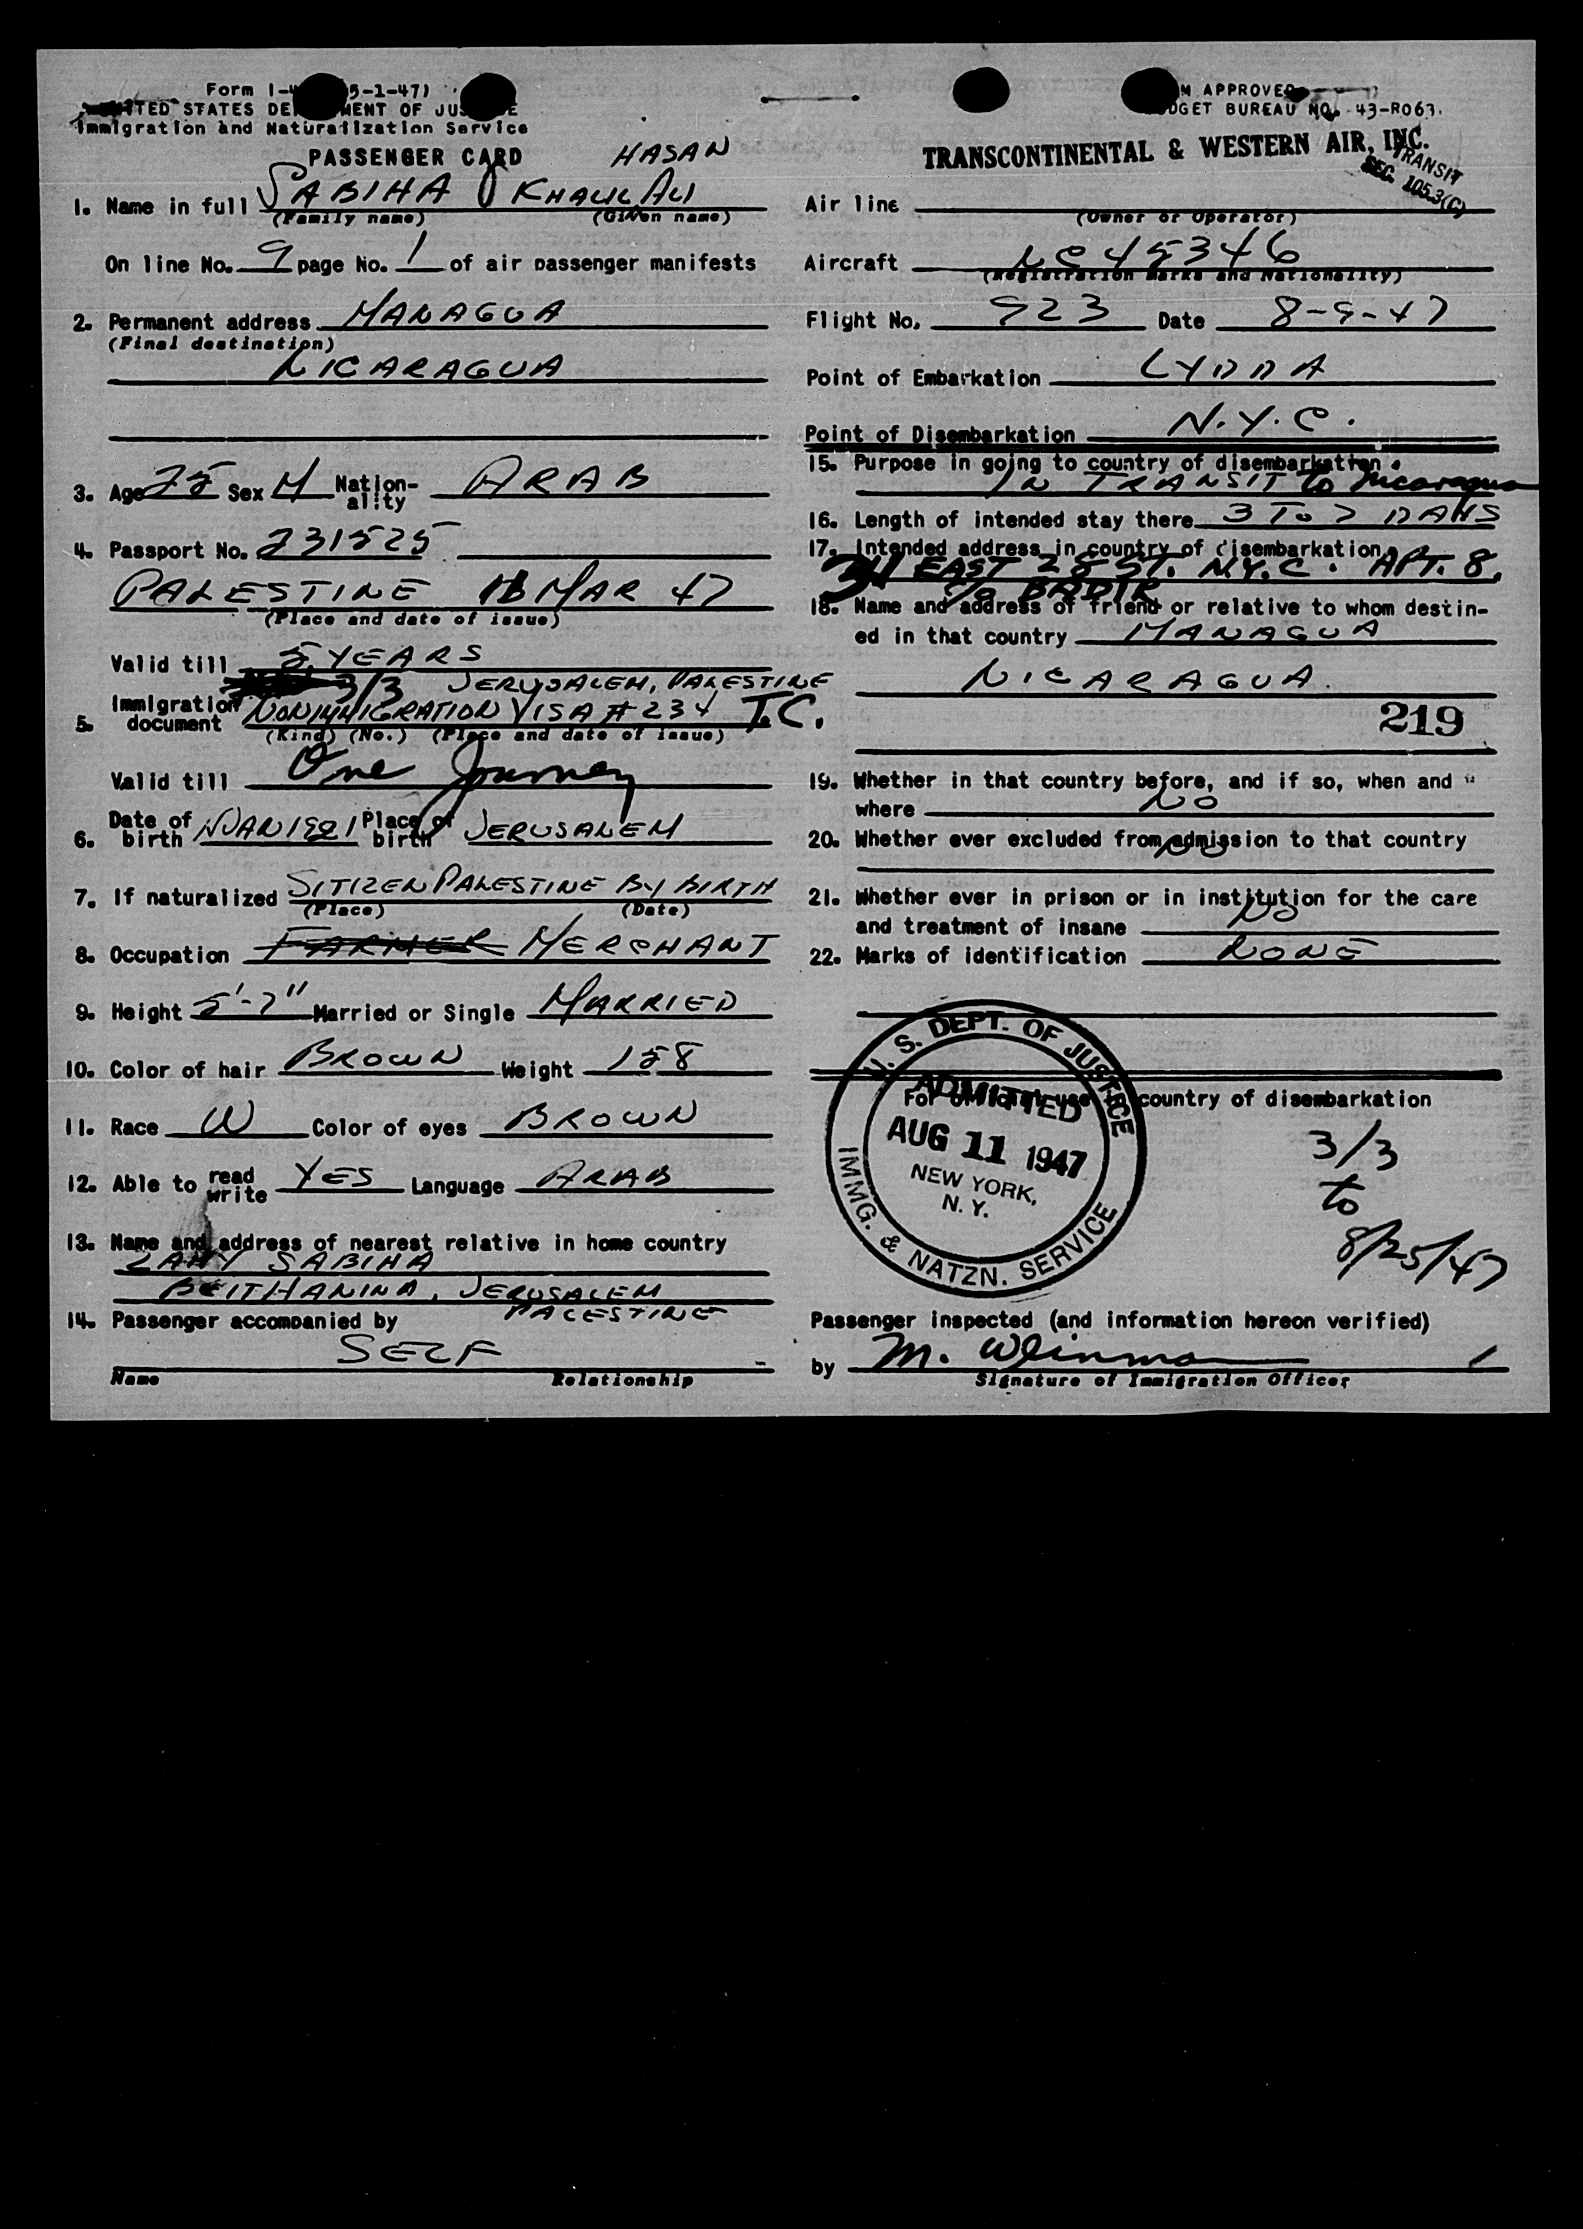 Form I-4 5-1-47)
UNITED STATES DE MENT OF JUS E
Immigration and Naturalization Service
PASSENGER CARD
HASAN
1. Name in full SABIHA KHALIL ALI
(Family name) (Given name)
On line No. 9 page No. 1 of air passenger manifests
2. Permanent address MANAGUA
(Final destination)
NICARAGUA
3. Age 25 Sex M Nation-ality ARAB
4. Passport No. 231525
PALESTINE MAR 47
(Place and date of issue)
Valid till 5 YEARS
3/3 JERUSALEM, PALESTINE
5. Immigration document NONIMMIGRATION VISA # 234 T.C.
(Kind) (No.) (Place and date of issue)
Valid till One Journey
6. Date of birth JAN 1921 Place of birth JERUSALEM
7. If naturalized SITIZEN PALESTINE BY BIRTH
(Place) (Date)
8. Occupation FARMER MERCHANT
9. Height 5'-7" Married or Single MARRIED
10. Color of hair BROWN Weight 158
11. Race W Color of eyes BROWN
12. Able to read write YES Language ARAB
13. Name and address of nearest relative in home country
SABIHA
BEITHANINA, JERUSALEM
PALESTINE
14. Passenger accompanied by
SELF
Name Relationship
M APPROVED
DGET BUREAU NO. 43-R063.
TRANSCONTINENTAL & WESTERN AIR, INC.
TRANSIT
SEC. 105.3(C)
Air line
(Owner or Operator)
Aircraft NC45346
(Registration Marks and Nationality)
Flight No. 923 Date 8-9-47
Point of Embarkation LYDDA
Point of Disembarkation N.Y.C.
15. Purpose in going to country of disembarkation.
IN TRANSIT to Nicaragua
16. Length of intended stay there 3 TO 7 DAYS
17. Intended address in country of disembarkation
EAST 28 ST. N.Y.C. APT. 8,
c/o BADIR
18. Name and address of friend or relative to whom destin-
ed in that country MANAGUA
NICARAGUA.
219
19. Whether in that country before, and if so, when and
where NO
20. Whether ever excluded from admission to that country
NO
21. Whether ever in prison or in institution for the care
and treatment of insane NO
22. Marks of identification NONE
For official use in country of disembarkation
U. S. DEPT. OF JUSTICE
ADMITTED
AUG 11 1947
NEW YORK,
N. Y.
IMMG. & NATZN. SERVICE
3/3
to
8/25/47
Passenger inspected (and information hereon verified)
by M. Weinman
Signature of Immigration Officer